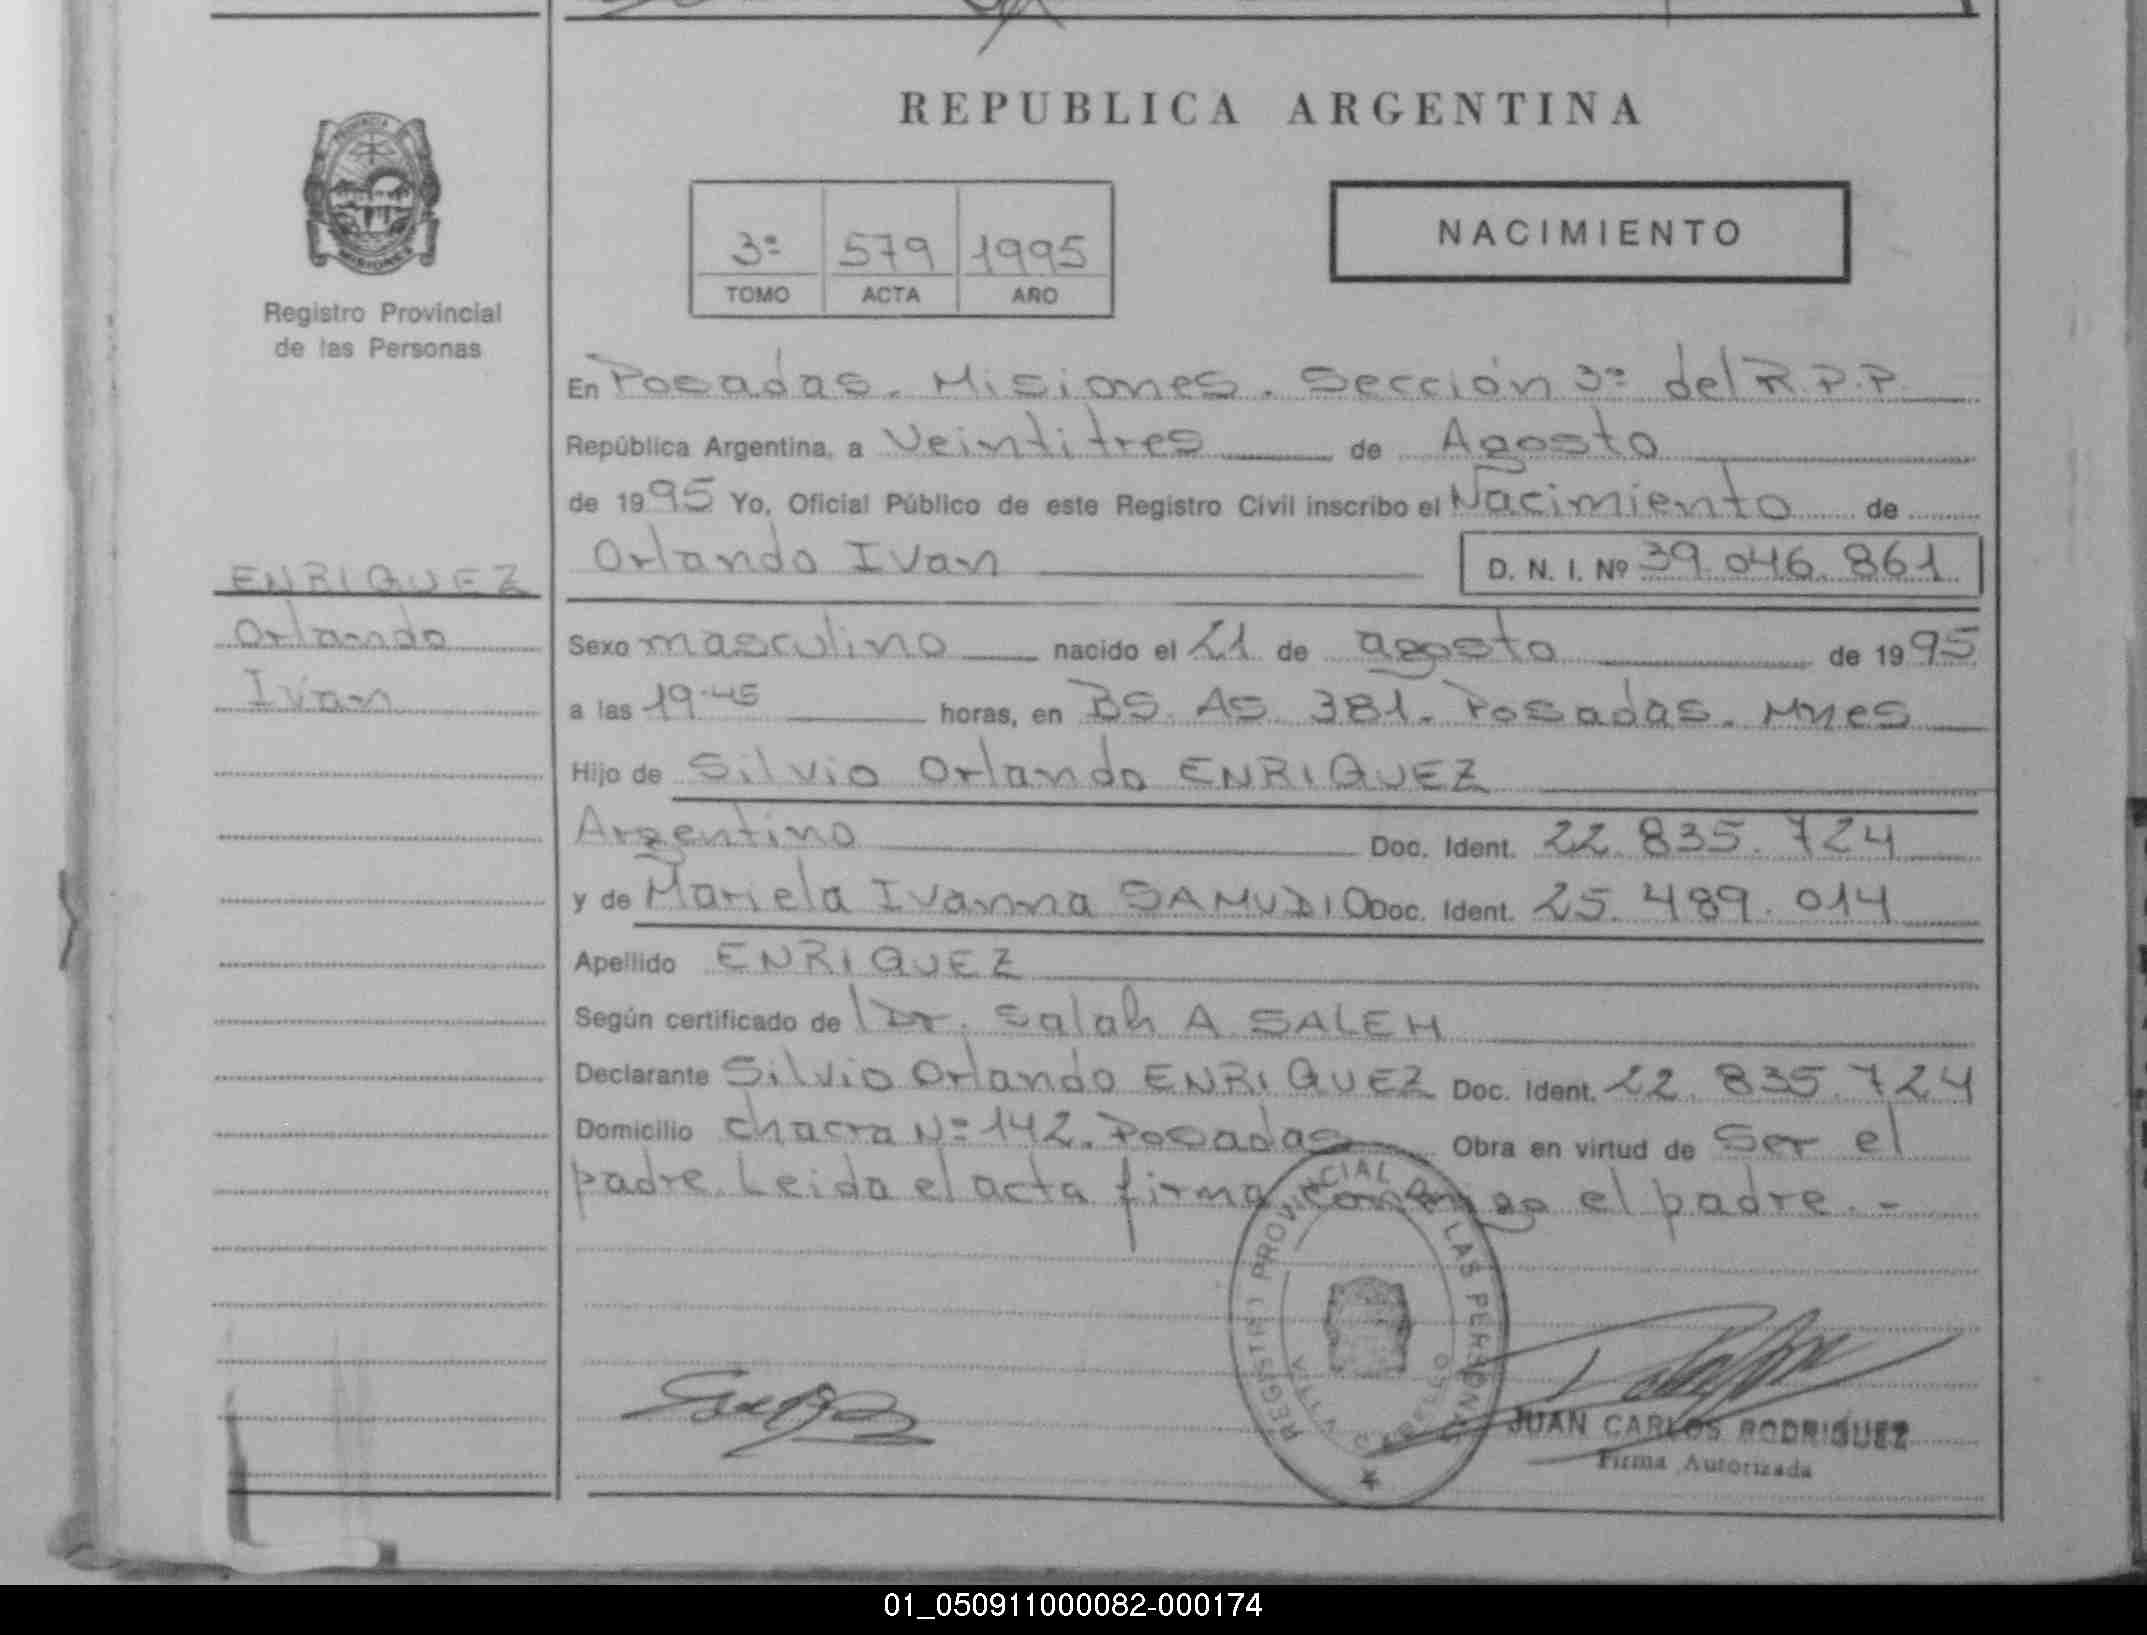 REPUBLICA ARGENTINA
PROVINCIA
MISIONES
Registro Provincial
de las Personas
3º 579 1995
TOMO ACTA AÑO
NACIMIENTO
En Posadas. Misiones. Sección 3ª del R.P.P.
República Argentina, a Veintitres de Agosto
de 1995 Yo, Oficial Público de este Registro Civil inscribo el Nacimiento de
Orlando Ivan D. N. I. Nº 39.046.861
ENRIQUEZ
Orlando
Ivan
Sexo masculino nacido el 21 de agosto de 1995
a las 19.45 horas, en BS. AS. 381. Posadas. Mnes
Hijo de Silvio Orlando ENRIQUEZ
Argentino Doc. Ident. 22.835.724
y de Mariela Ivanna SAMUDIO Doc. Ident. 25.489.014
Apellido ENRIQUEZ
Según certificado de Dr. Salah A SALEH
Declarante Silvio Orlando ENRIQUEZ Doc. Ident. 22.835.724
Domicilio chacra Nº 142. Posadas Obra en virtud de Ser el
padre. Leida el acta firma conmigo el padre. -
REGISTRO PROVINCIAL DE LAS PERSONAS
VILLA CABELLO
JUAN CARLOS RODRIGUEZ
Firma Autorizada
01_050911000082-000174